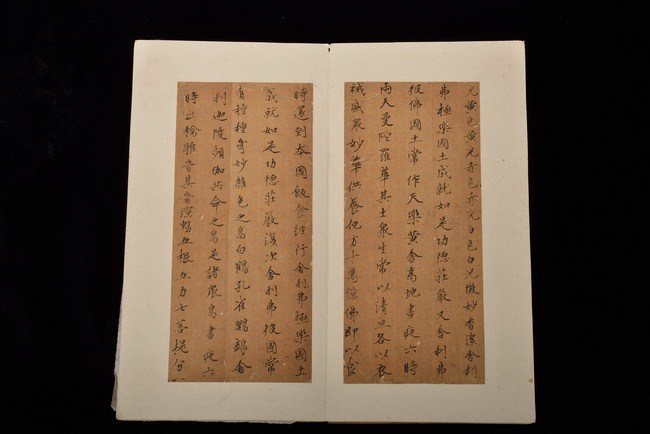 光黃色黃光赤色赤光白色白光微妙香潔舍利
弗極樂國土成就如是功德莊嚴又舍利弗
彼佛國土常作天樂黃金為地晝夜六時
雨天曼陀羅華其土眾生常以清旦各以衣
裓盛眾妙華供養他方十萬億佛即以食
時還到本國飯食經行舍利弗極樂國土
成就如是功德莊嚴復次舍利弗彼國常
有種種奇妙雜色之鳥白鶴孔雀鸚鵡舍
利迦陵頻伽共命之鳥是諸眾鳥晝夜六
時出和雅音其音演暢五根五力七菩提分八